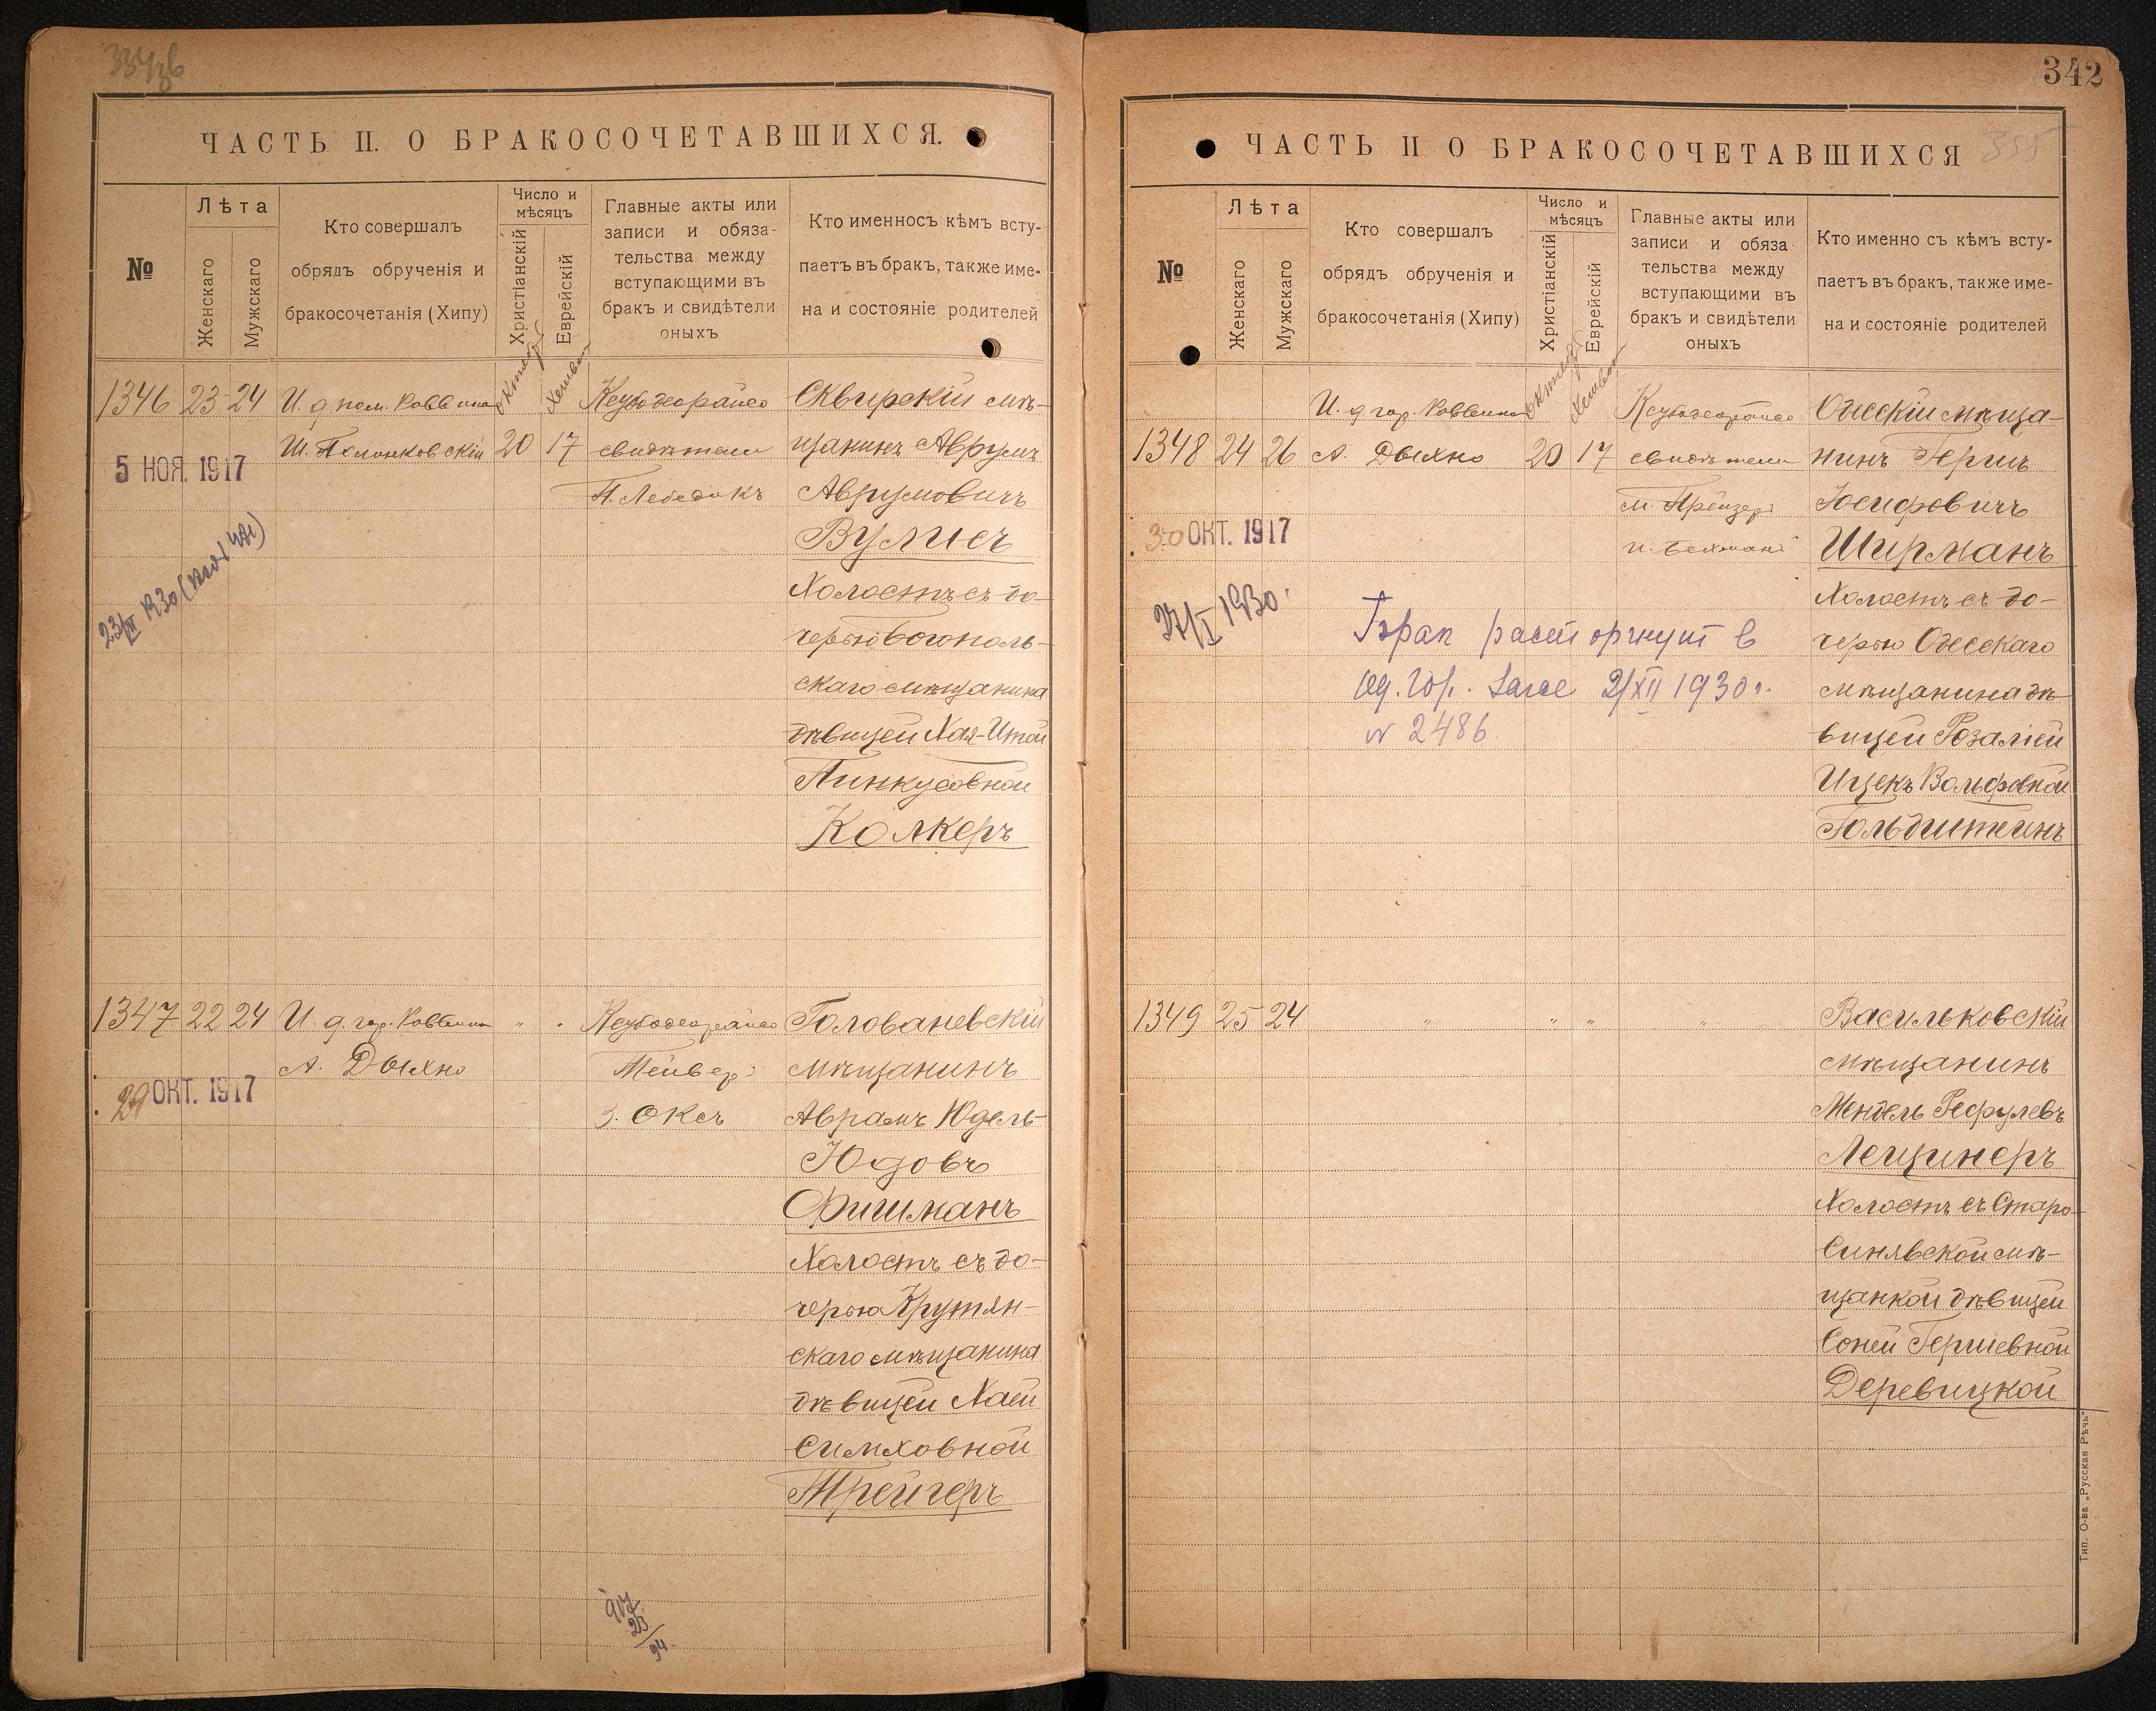 ЧАСТЬ II. О БРАКОСОЧЕТАВШИХСЯ.
№
Лѣта
Женскаго
Мужскаго
Кто совершалъ
обрядъ обрученія и
бракосочетанія (Хипу)
Число и
мѣсяцъ
Христіанскій
Еврейскій
Главные акты или
записи и обяза-
тельства между
вступающими въ
бракъ и свидѣтели
оныхъ
Кто именносъ кѣмъ всту-
паетъ въ бракъ, также име-
на и состояніе родителей
1346 23 24
И. д. пом. Раввина
Ш. Полонковскій
Октяб
Хешван
20 17
Ксубодеорайсо
свидѣтели
П. Лебедикъ
Сквирскій мѣ-
щанинъ Аврумъ
Аврумовичъ
Вулисъ
Холостъ съ до-
черью Богополь-
скаго мѣщанина
дѣвицей Хая-Итой
Пинкусовной
Колкеръ
5 НОЯ. 1917
1347 22 24
И. д. гор. Раввина
А. Дыхно
" "
Ксубодеорайсо
Тейвер
З. Оксъ
Голованевскій
мѣщанинъ
Аврамъ Юдель-
Юдовъ
Фишманъ
Холостъ съ до-
черью Крутян-
скаго мѣщанина
дѣвицей Хаей
Симховной
Трейгеръ
29 ОКТ. 1917
342
ЧАСТЬ II О БРАКОСОЧЕТАВШИХСЯ
355
№
Лѣта
Женскаго
Мужскаго
Кто совершалъ
обрядъ обрученія и
бракосочетанія (Хипу)
Число и
мѣсяцъ
Христіанскій
Еврейскій
Главные акты или
записи и обяза
тельства между
вступающими въ
бракъ и свидѣтели
оныхъ
Кто именно съ кѣмъ всту-
паетъ въ бракъ, также име-
на и состояніе родителей
1348 24 26
И. д. гор. Раввина
А. Дыхно
Октяб
Хешван
20 17
Ксубодеорайсо
свидѣтели
М. Прейзер
Одесскій мѣща-
нинъ Гершъ
Іосифовичъ
Ширманъ
Холостъ съ до-
черью Одесскаго
мѣщанина дѣ-
вицей Розаліей
Ицекъ Вольфовной
Гольдштейнъ
30 ОКТ. 1917
27/I 1930г
Брак расторгнут в
Од. Заге 2/XII 1930г.
№ 2486
1349 25 24
" " " "
Васильковскій
мѣщанинъ
Мендель Рефулевъ
Лещинеръ
Холостъ съ Старо-
Синявской мѣ-
щанкой дѣвицей
Соней Гершевной
Деревицкой
Тип. О-ва „Русская Рѣчь"